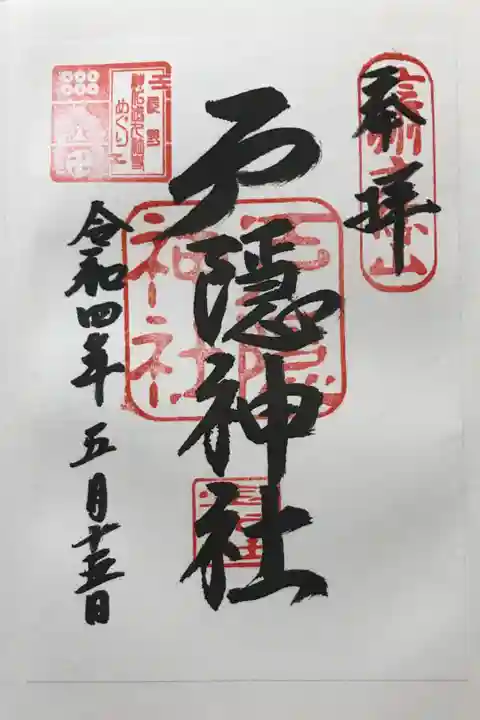 奉拝
信州戸隠山
戸隠神社
戸隠
神社
令和四年五月十五日
長野
めぐり